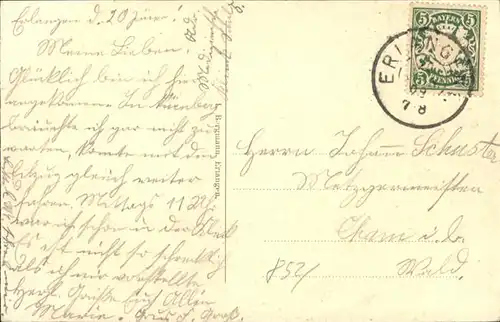 Erlangen d. 20 Jänn!
Meine Lieben!
Glücklich bin ich hier
angekommen. In Nürnberg
brauchte ich gar nicht zu
warten, konnte mit dem
Eilzug gleich weiter
fahren. Mittags 11 Uhr
war ich schon in der
Es ist nicht so schrecklich
als ich mir vorstellte
Herzl. Grüße Euch Allen
Marie.
Bergmann, Erlangen.
5 BAYERN 5
5 PFENNIG 5
ERLANGEN
09
7-8
Herrn Johann Schuster
Metzgermeister
Cham a. d.
Wald.
852/